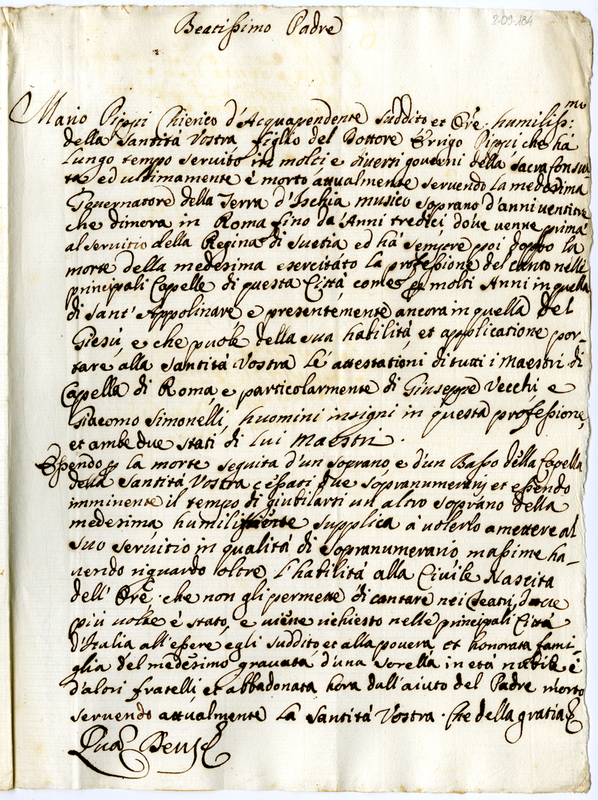 2-09-184
Beatissimo Padre
Mario Pippi Chierico d'Acquapendente suddito et Ore. humiliss.mo
della Santità Vostra figlio del Dottore Errigo Pippi che hà
lungo tempo servito in molti e diversi governi della Sacra Consul
ta ed ultimamente è morto attualmente servendo la medesima
Governatore della Terra d'Ischia musico soprano d'anni ventisei
che dimora in Roma fino da' Anni tredici dove venne prima
al servitio della Regina di Suetia ed hà sempre poi doppo la
morte della medesima esercitato la professione del canto nelle
principali Capelle di questa Città come molti Anni in quella
di Sant'Appolinare e presentemente ancora in quella del
Giesù, e che puole della sua habilità et applicatione por-
tare alla Santità Vostra le attestationi di tutti i Maestri di
Capella di Roma e particolarmente di Giuseppe Vecchi e
Giacomo Simonelli, huomini insigni in questa professione,
et ambe due stati di lui Maestri.
Essendo p la morte seguita d'un soprano, e d'un Basso della Capella
della Santità Vostra cessati due sopranumerarij et essendo
imminente il tempo di giubilarsi un altro soprano della
medesima humilissite supplica à volerlo amettere al
suo servitio in qualità di sopranumerario massime ha-
vendo riguardo oltre l'habilità alla Civile Nascita
dell'Ore. che non gli permette di cantare nei Teatri, dove
più volte è stato, e viene richiesto nelle principali Città
d'Italia all'essere egli suddito et alla povera et honorata fami-
glia del medesimo gravata d'una sorella in età nubile e
d'altri fratelli et abbadonata hora dall'aiuto del Padre morto
servendo attualmente la Santità Vostra. Che della gratia &
Qua Deus &